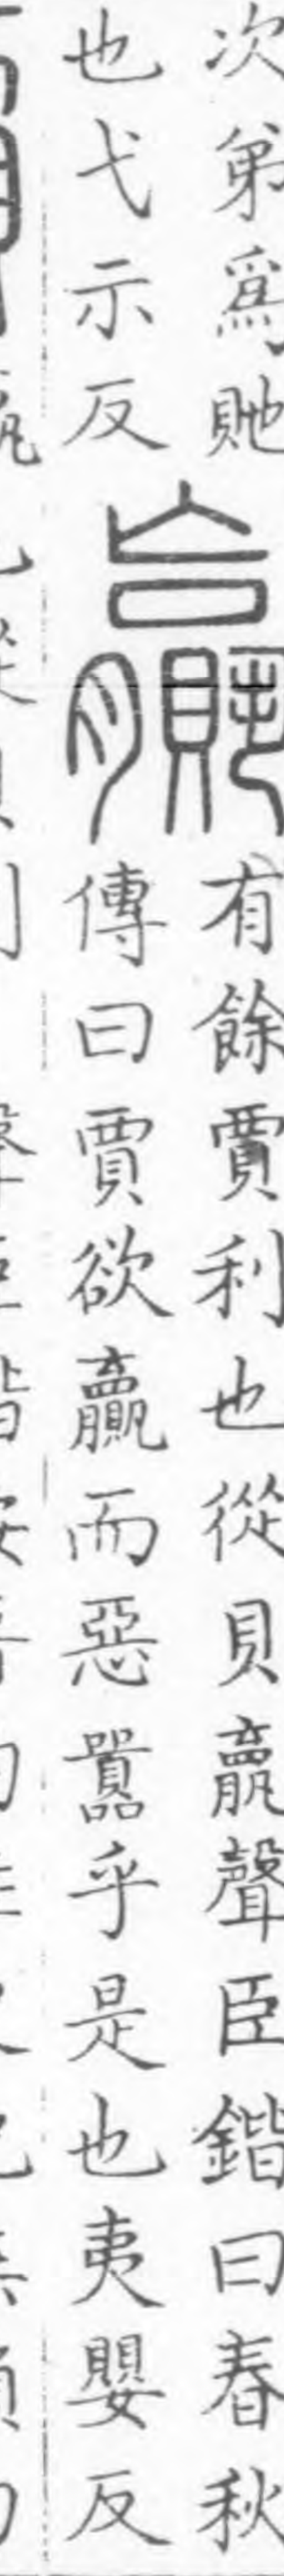 次第爲貤
也弋示反
贏
有餘賈利也從貝𣎆聲臣鍇曰春秋
傳曰賈欲贏而惡囂乎是也夷嬰反